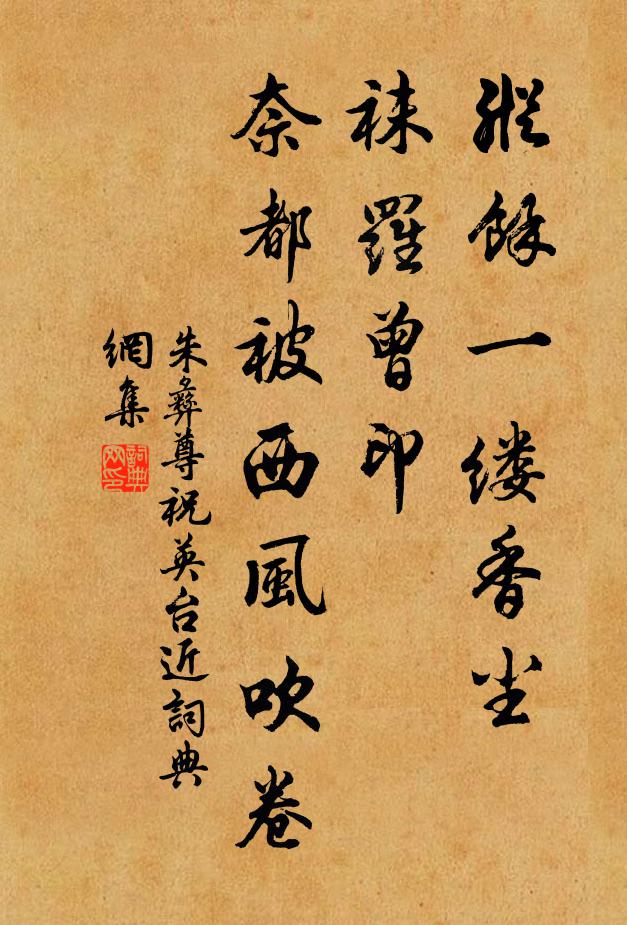 縱餘一缕香尘
袜羅曾印
奈都被西風吹卷
朱彝尊祝英台近詞典
網集
詞典
网印